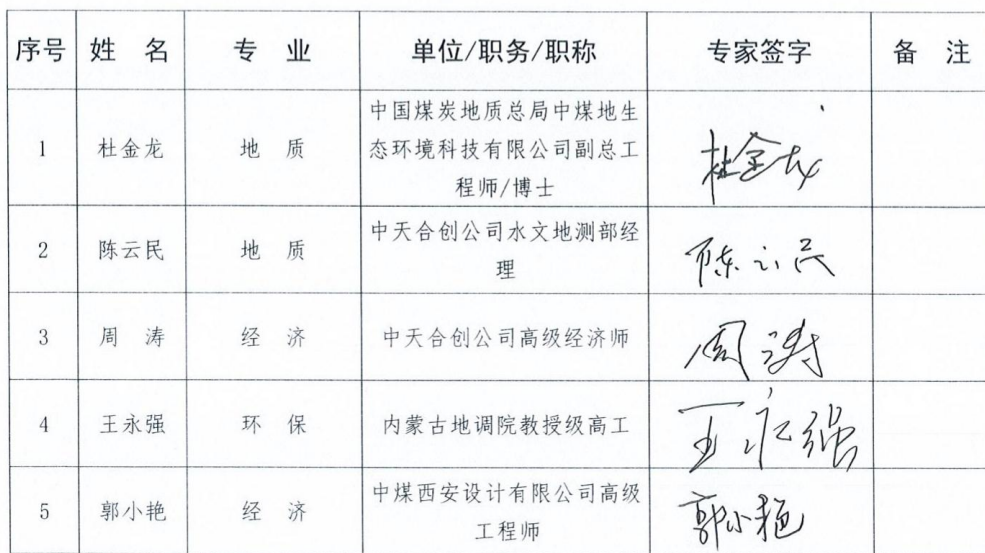 序号 姓 名 专 业 单位/职务/职称 专家签字 备 注
1 杜金龙 地 质 中国煤炭地质总局中煤地生
态环境科技有限公司副总工
程师/博士 杜金龙
2 陈云民 地 质 中天合创公司水文地测部经
理 陈云民
3 周 涛 经 济 中天合创公司高级经济师 周涛
4 王永强 环 保 内蒙古地调院教授级高工 王永强
5 郭小艳 经 济 中煤西安设计有限公司高级
工程师 郭小艳